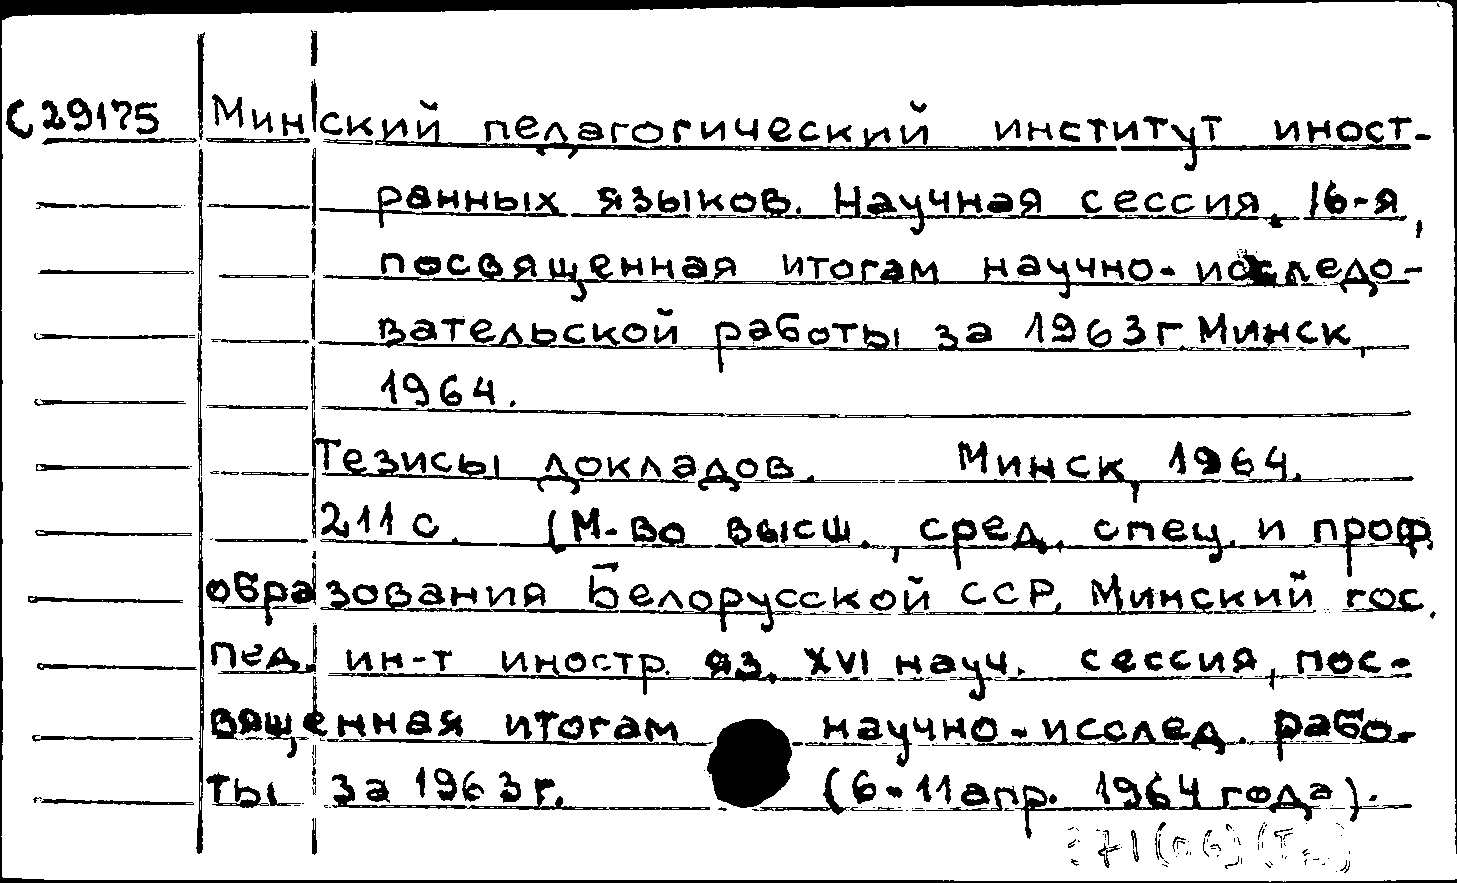 С 29175 Минский педагогический институт иност-
ранных языков. Научная сессия, 16-я,
посвященная итогам научно-исследо-
вательской работы за 1963 г. Минск,
1964.
Тезисы докладов. Минск, 1964.
211 с. (М-во высш., сред. спец. и проф.
образования Белорусской ССР. Минский гос.
пед. ин-т иностр. яз. XVI науч. сессия, пос-
вященная итогам научно-исслед. рабо-
ты за 1963 г. (6-11 апр. 1964 года).